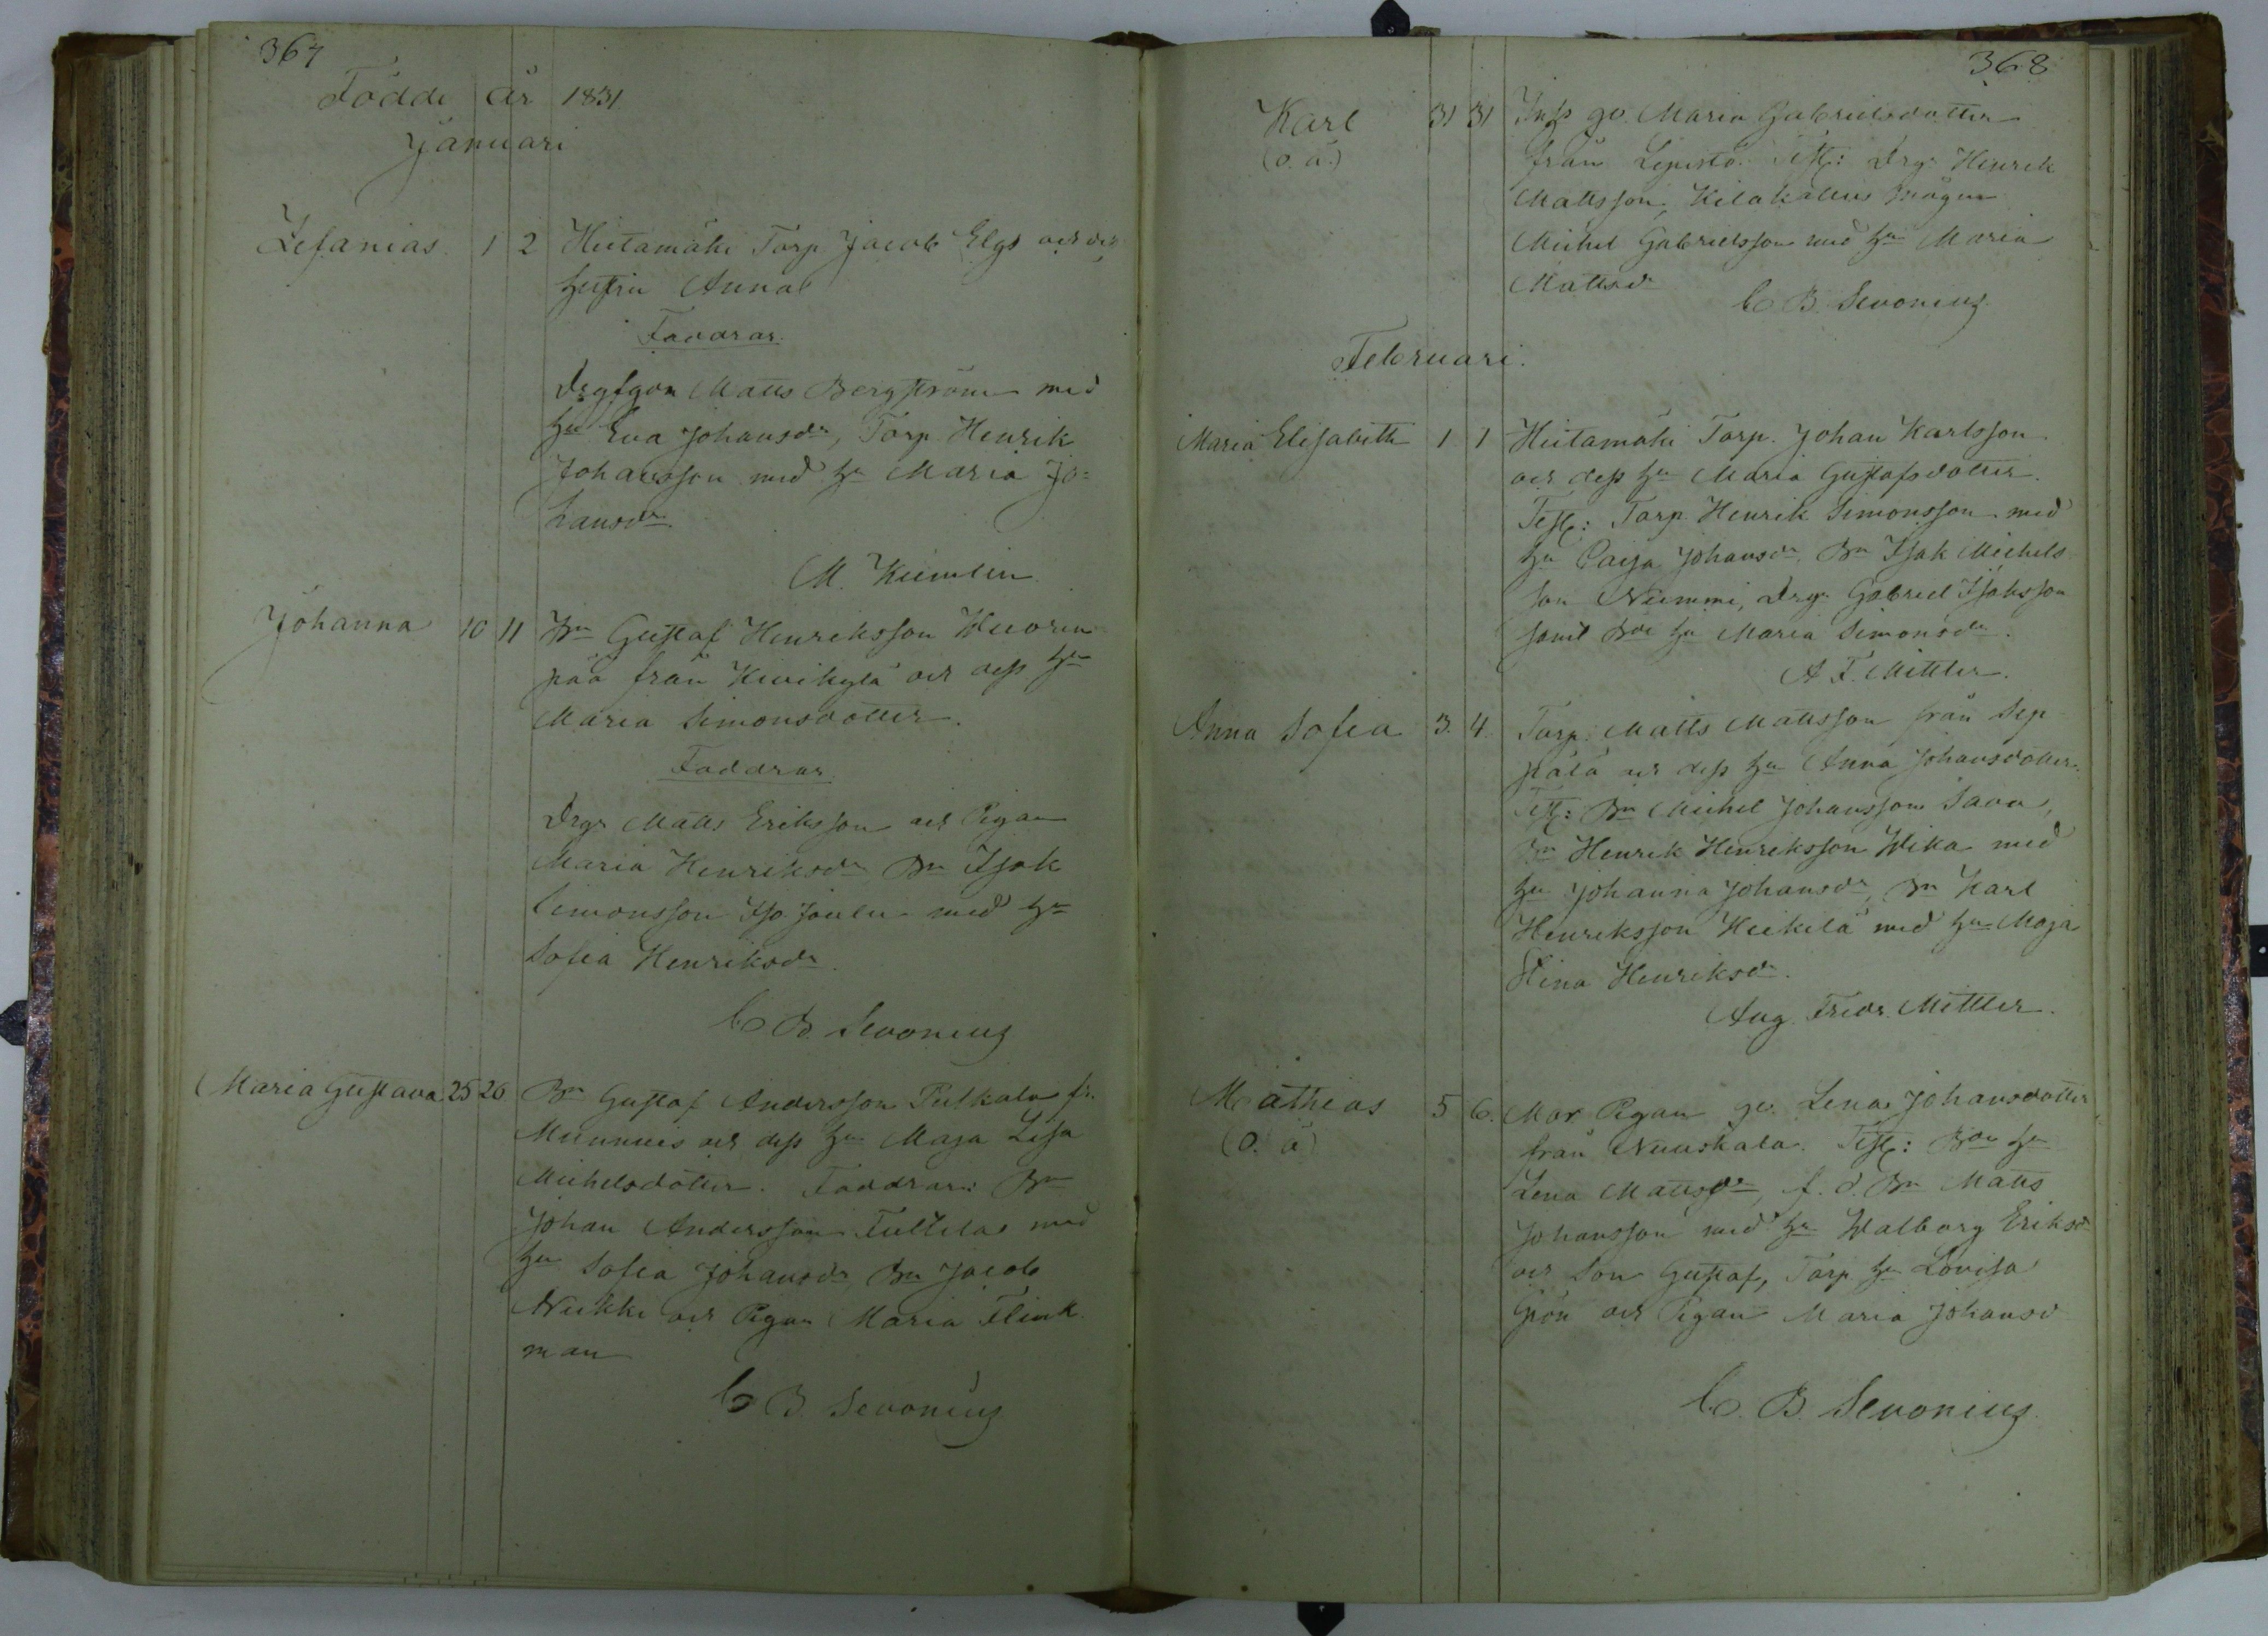 367
Födde år 1831
Januari
Zefanias. 1 2 Hiitamäki Torp. Jacob Elgs och dess
hustru Anna
Faddrar.
Drgfgon Matts Bergström med
hu Eva Johansdr, Torp. Henrik
Johansson med hu Maria Jo=
hansdr
M. Kumlin
Johanna 10 11 Bn Gustaf Henriksson Wuoren
pää från Kivikylä och dess hu
Maria Simonsdotter.
Faddrar
Drgr Matts Eriksson och Pigan
Maria Henriksdr Bn Isak
Simonsson Iso Joulu med hu
Sofia Henriksdr
C B. Sevonius
Maria Gustava 25 26 Bn Gustaf Andersson Pulkala fr.
Munnuis och dess hu Maja Lisa
Michelsdotter. Faddrar: Bn
Johan Andersson Tultila med
hu Sofia Johansdr Bn Jacob
Nukki och Pigan Maria Flink
man
C B. Sevonius
368
Karl 31 31 Inhs go. Maria Gabrielsdotter
(o. ä.) från Lepistö. Test: Drg. Henrik
Mattsson, Kilakallius mågen
Michel Gabrielsson med hu Maria
Mattsdr
C B. Sevonius
Februari.
Maria Elisabeth 1 1 Hiitamäki Torp. Johan Karlsson
och dess hu Maria Gustafsdotter.
Test: Torp. Henrik Simonsson med
hu Caisa Johansdr, Bn Isak Michels
son Nummi, Drg. Gabriel Isaksson
samt Bde hu Maria Simonsdr.
A F. Mittler.
Anna Sofia 3. 4. Torp. Matts Mattsson från Sep
pälä och dess hu Anna Johansdotter.
Test: Bn Michel Johansson Sava,
Bn Henrik Henriksson Wika med
hu Johanna Johansdr, Bn Karl
Henriksson Heikilä med hu Maja
Stina Henriksdr.
Aug. Fredr. Mittler.
Mathias 5 6. Mor Pigan go. Lena Johansdotter
(o. ä) från Nuuskala. Test: Bde hu
Lena Mattsdr, f. d. Bn Matts
Johansson med hu Walborg Eriksdr
och Son Gustaf, Torp hu Lovisa
Grön och Pigan Maria Johansd
C. B. Sevonius.